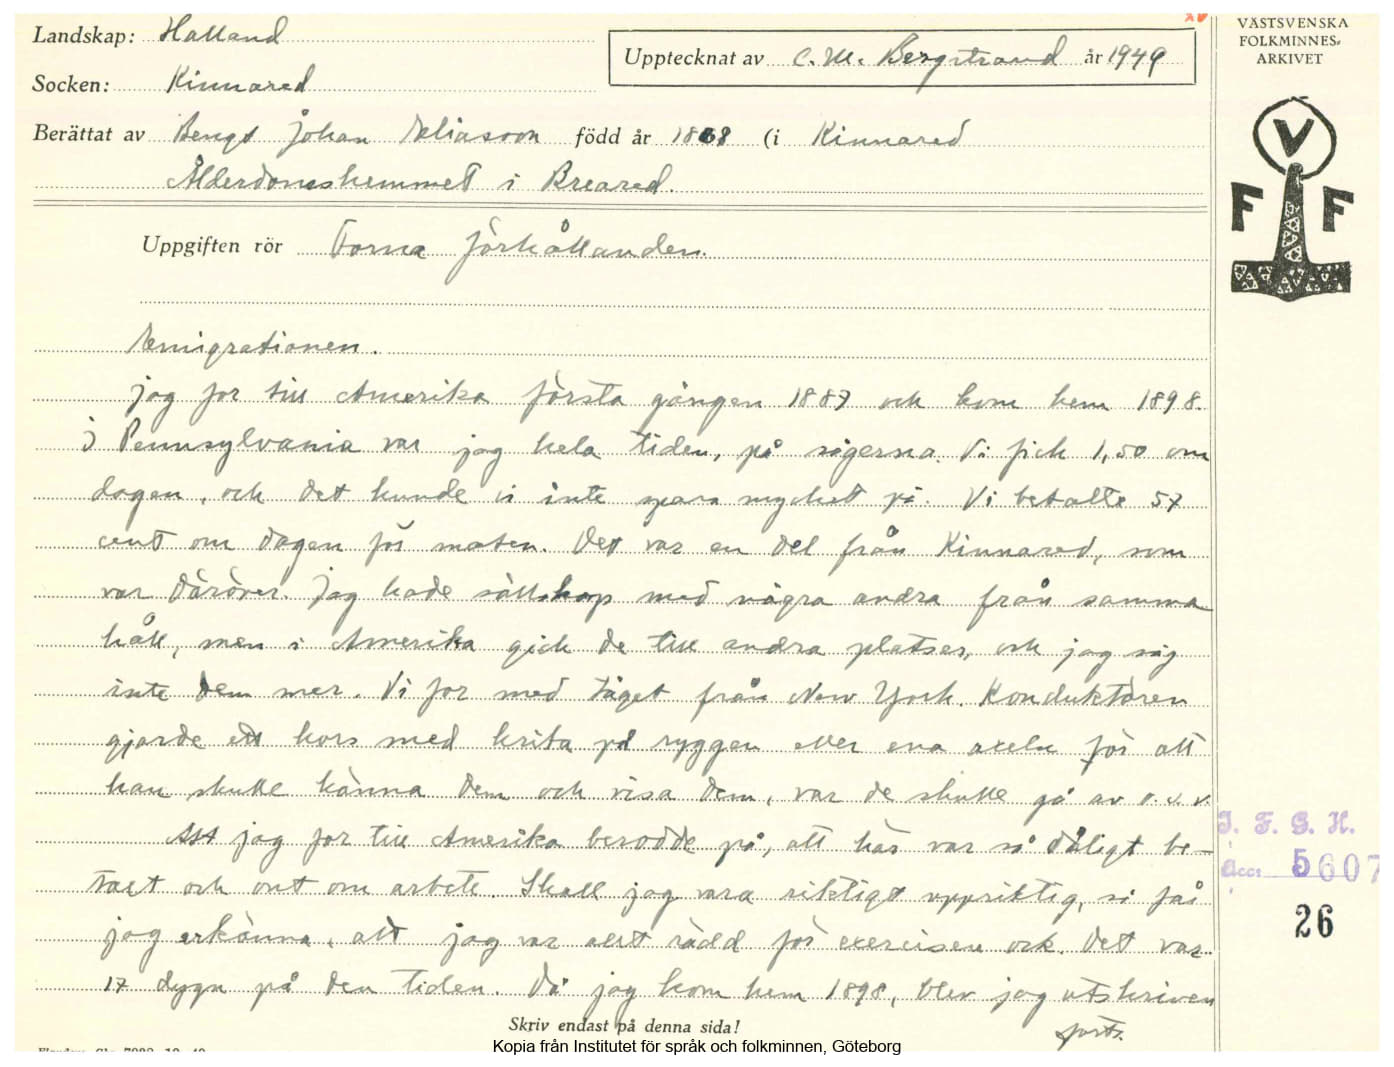 Landskap: Halland
Socken: Kinnared
Upptecknat av C. M. Bergstrand år 1949
Berättat av Bengt Johan Eliasson född år 1868 (i Kinnared
Ålderdomshemmet i Breared.
VÄSTSVENSKA
FOLKMINNES-
ARKIVET
V
F F
Uppgiften rör Forna förhållanden.
Emigrationen.
Jag for till Amerika första gången 1887 och kom hem 1898.
I Pennsylvania var jag hela tiden, på sågerna. Vi fick 1,50 om
dagen, och det kunde vi inte spara mycket på. Vi betalte 57
cent om dagen för maten. Det var en del från Kinnared, som
var däröver. Jag hade sällskap med några andra från samma
håll, men i Amerika gick de till andra platser, och jag såg
inte dem mer. Vi for med tåget från New York. Konduktören
gjorde ett kors med krita på ryggen eller ena axeln för att
han skulle känna dem och visa dem, var de skulle gå av o.s.v.
Att jag for till Amerika berodde på, att här var så dåligt be-
talt och ont om arbete. Skall jag vara riktigt uppriktig, så får
jag erkänna, att jag var allt rädd för exercisen ock. Det var
17 dygn på den tiden. Då jag kom hem 1898, blev jag utskriven
forts.
Skriv endast på denna sida!
Kopia från Institutet för språk och folkminnen, Göteborg
I. F. G. H.
Acc: 5607
26